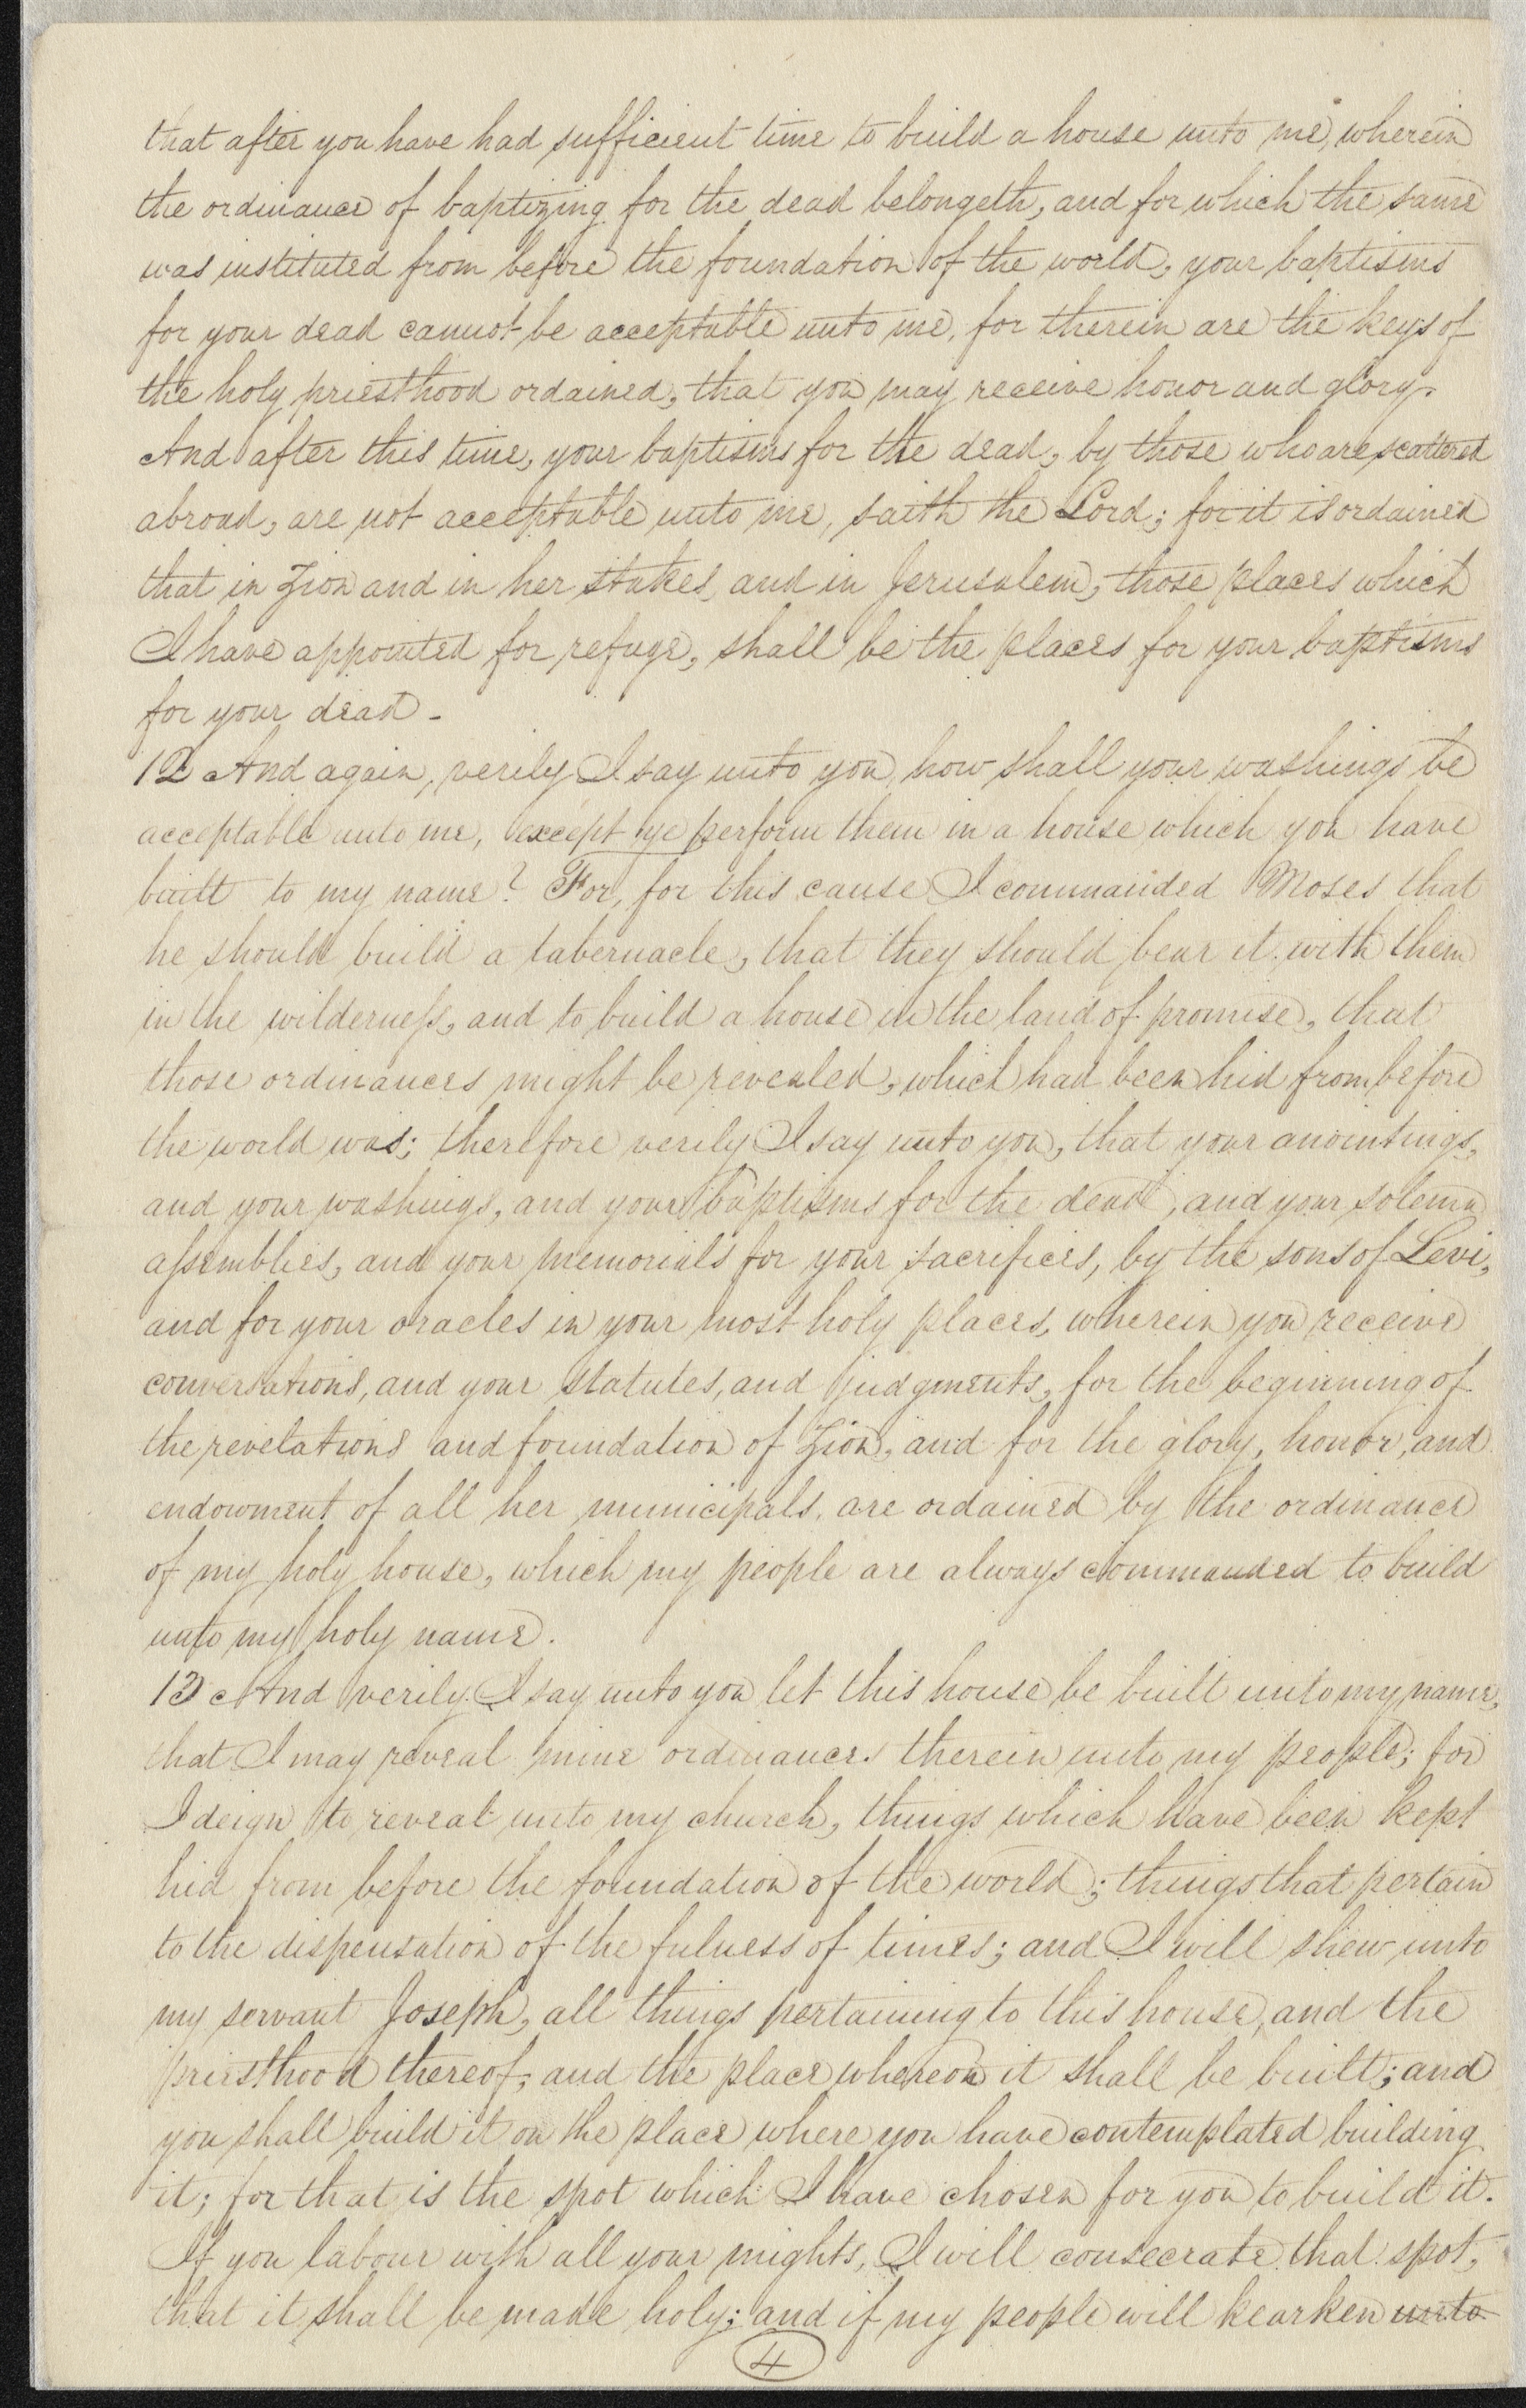 that after you have had sufficient time to build a house unto me, wherein
the ordinance of baptizing for the dead belongeth, and for which the same
was instituted from before the foundation of the world, your baptisms
for your dead cannot be acceptable unto me, for therein are the keys of
the holy priesthood ordained, that you may receive honor and glory.
And after this time, your baptisms for the dead, by those who are scattered
abroad, are not acceptable unto me, saith the Lord; for it is ordained
that in Zion and in her stakes, and in Jerusalem, those places which
I have appointed for refuge, shall be the places for your baptisms
for your dead -
12 And again, verily I say unto you, how shall your washings be
acceptable unto me, except ye perform them in a house which you have
built to my name? For, for this cause I commanded Moses that
he should build a tabernacle, that they should bear it with them
in the wilderness, and to build a house in the land of promise, that
those ordinances might be revealed, which had been hid from before
the world was; therefore verily I say unto you, that your anointings,
and your washings, and your baptisms for the dead, and your solemn
assemblies, and your memorials for your sacrifices, by the sons of Levi,
and for your oracles in your most holy places, wherein you receive
conversations, and your statutes, and judgments, for the beginning of
the revelations and foundation of Zion, and for the glory, honor, and
endowment of all her municipals, are ordained by the ordinance
of my holy house, which my people are always commanded to build
unto my holy name.
13 And verily I say unto you let this house be built unto my name,
that I may reveal mine ordinances therein unto my people; for
I deign to reveal unto my church, things which have been kept
hid from before the foundation of the world; things that pertain
to the dispensation of the fulness of times; and I will shew unto
my servant Joseph, all things pertaining to this house, and the
priesthood thereof; and the place whereon it shall be built; and
you shall build it on the place where you have contemplated building
it; for that is the spot which I have chosen for you to build it.
If you labour with all your mights, I will consecrate that spot,
that it shall be made holy; and if my people will hearken unto
4